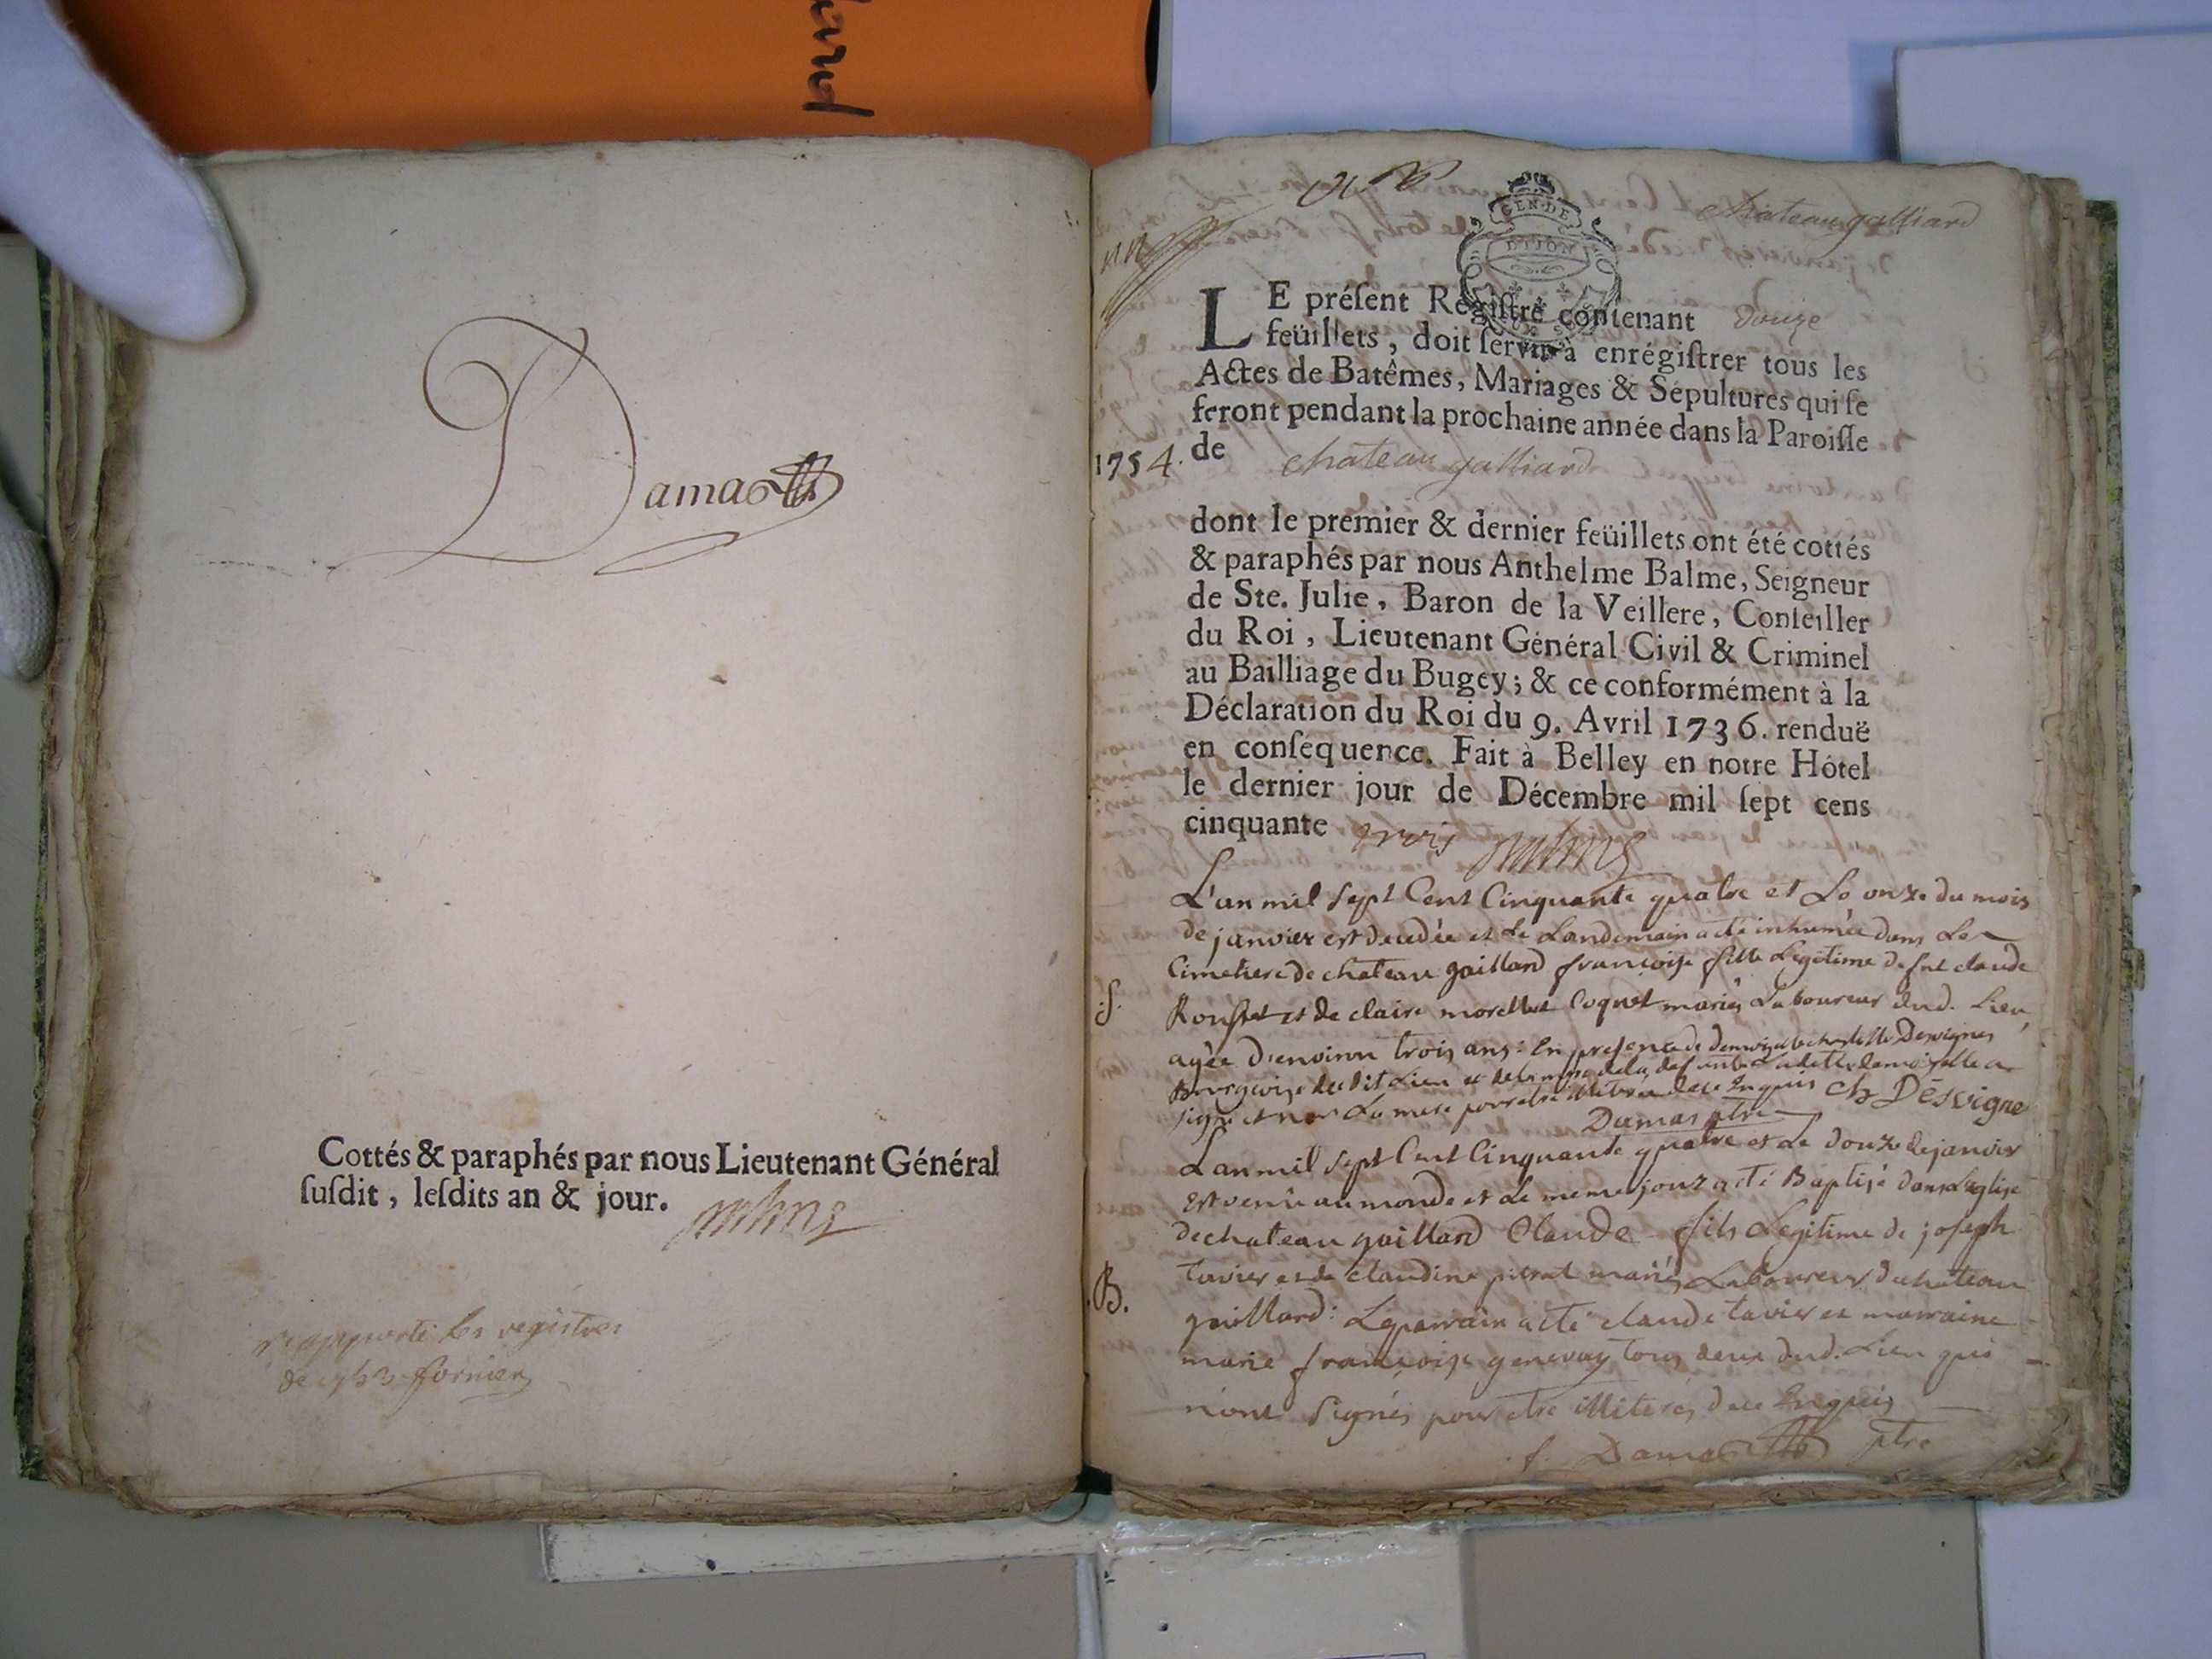 Damas
Cottés & paraphés par nous Lieutenant Général
ſuſdit, leſdits an & jour.
Balme
rapporté les registres
de 1753 fornier
chateaugalliard
GEN·DE
DIJON
LE préſent Regiſtre contenant douze
feüillets, doit ſervir à enrégiſtrer tous les
Actes de Batêmes, Mariages & Sépultures qui ſe
feront pendant la prochaine année dans la Paroiſſe
1754. de chateau galliard
dont le premier & dernier feüillets ont été cottés
& paraphés par nous Anthelme Balme, Seigneur
de Ste. Julie, Baron de la Veillere, Conſeiller
du Roi, Lieutenant Général Civil & Criminel
au Bailliage du Bugey; & ce conformément à la
Déclaration du Roi du 9. Avril 1736. renduë
en conſéquence. Fait à Belley en notre Hôtel
le dernier jour de Décembre mil ſept cens
cinquante trois Balme
L'an mil sept Cent Cinquante quatre et Le onze du mois
de janvier est decedée et Le Landemain a été inhumée dans Le
Cimetiere de chateau gaillard françoise fille Legitime de fut claude
S. Rousset et de claire morellet Coquet mariés Laboureur dud. Lieu,
agée d'environ trois ans: En presence de demoiselle Desvignes
Bourgeoise du dit Lieu et de la mere de la defunte Ladette demoiselle a
signé et non La mere pour etre illiterée de ce Enquis ch Désvigne
Damas ptre
L'an mil sept Cent Cinquante quatre et Le douze de janvier
est venu au monde et Le meme jour a été Baptisé dans L'eglise
de chateau gaillard Claude fils Legitime de joseph
B. tavier et de claudine pitrat mariés Laboureur du chateau
gaillard: Le parrain a été claude tavier et marraine
marie françoise genevay tous deux dud. Lieu qui
n'ont signés pour etre illiterés de ce Enquis
f. Damas ptre